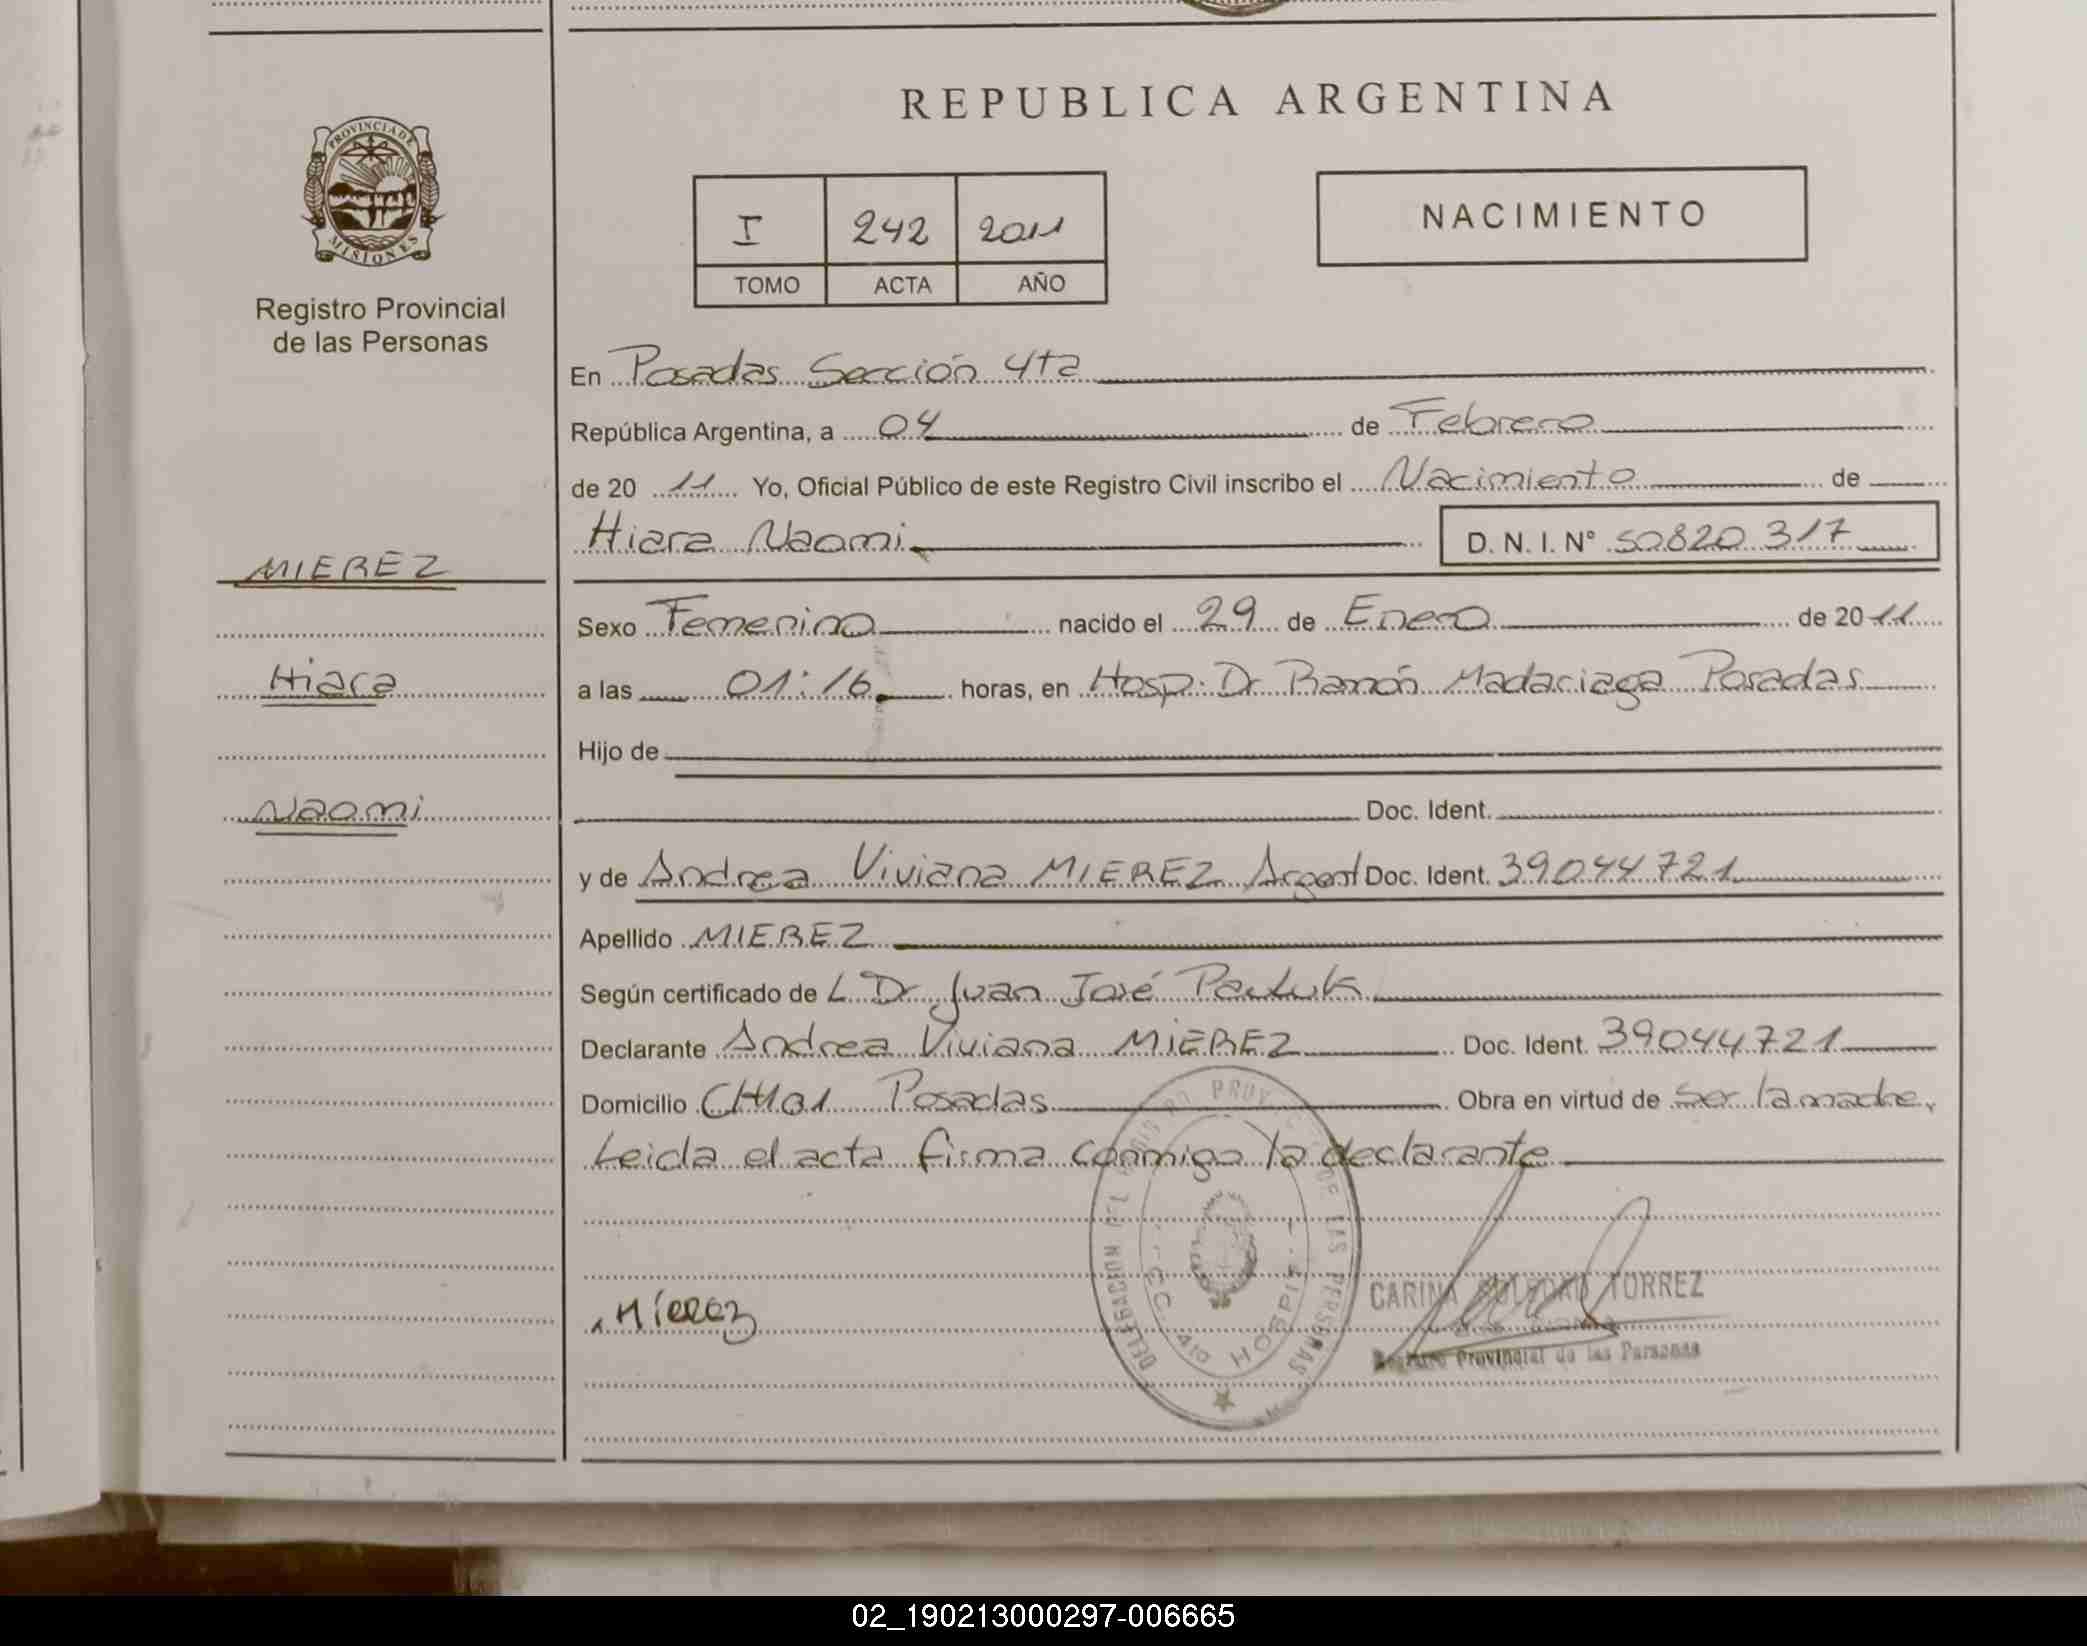 REPUBLICA ARGENTINA
PROVINCIA DE
MISIONES
Registro Provincial
de las Personas
I 242 2011
TOMO ACTA AÑO
NACIMIENTO
En Posadas Sección 4ta
República Argentina, a 04 de Febrero
de 20 11 Yo, Oficial Público de este Registro Civil inscribo el Nacimiento de
Hiara Naomi D. N. I. N° 50820317
MIEREZ
Hiara
Naomi
Sexo Femenino nacido el 29 de Enero de 20 11
a las 01:16 horas, en Hosp. Dr Ramón Madariaga Posadas
Hijo de
Doc. Ident.
y de Andrea Viviana MIEREZ Argent Doc. Ident. 39044721
Apellido MIEREZ
Según certificado de L Dr Juan José
Declarante Andrea Viviana MIEREZ Doc. Ident. 39044721
Domicilio CH101 Posadas Obra en virtud de ser la madre,
Leida el acta firma conmigo la declarante
Mierez
DELEGACION DEL REGISTRO PROV. DE LAS PERSONAS
HOSPI
CARINA SOLEDAD TORREZ
Registro Provincial de las Personas
02_190213000297-006665